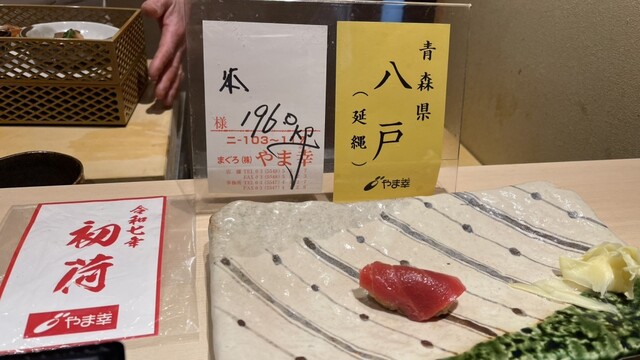 様
1960
ニ-103-1
まぐろ(株)やま幸
青森県
八戸
(延縄)
やま幸
令和七年
初荷
やま幸